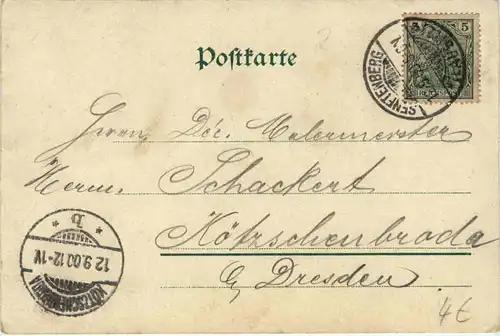 Postkarte
5
SENFTENBERG
Herrn Dec. Malermeister
Herm. Schackert
Kötzschenbroda
b/ Dresden
* b *
12.9.00.12-1V
KÖTZSCHENBRODA
4€